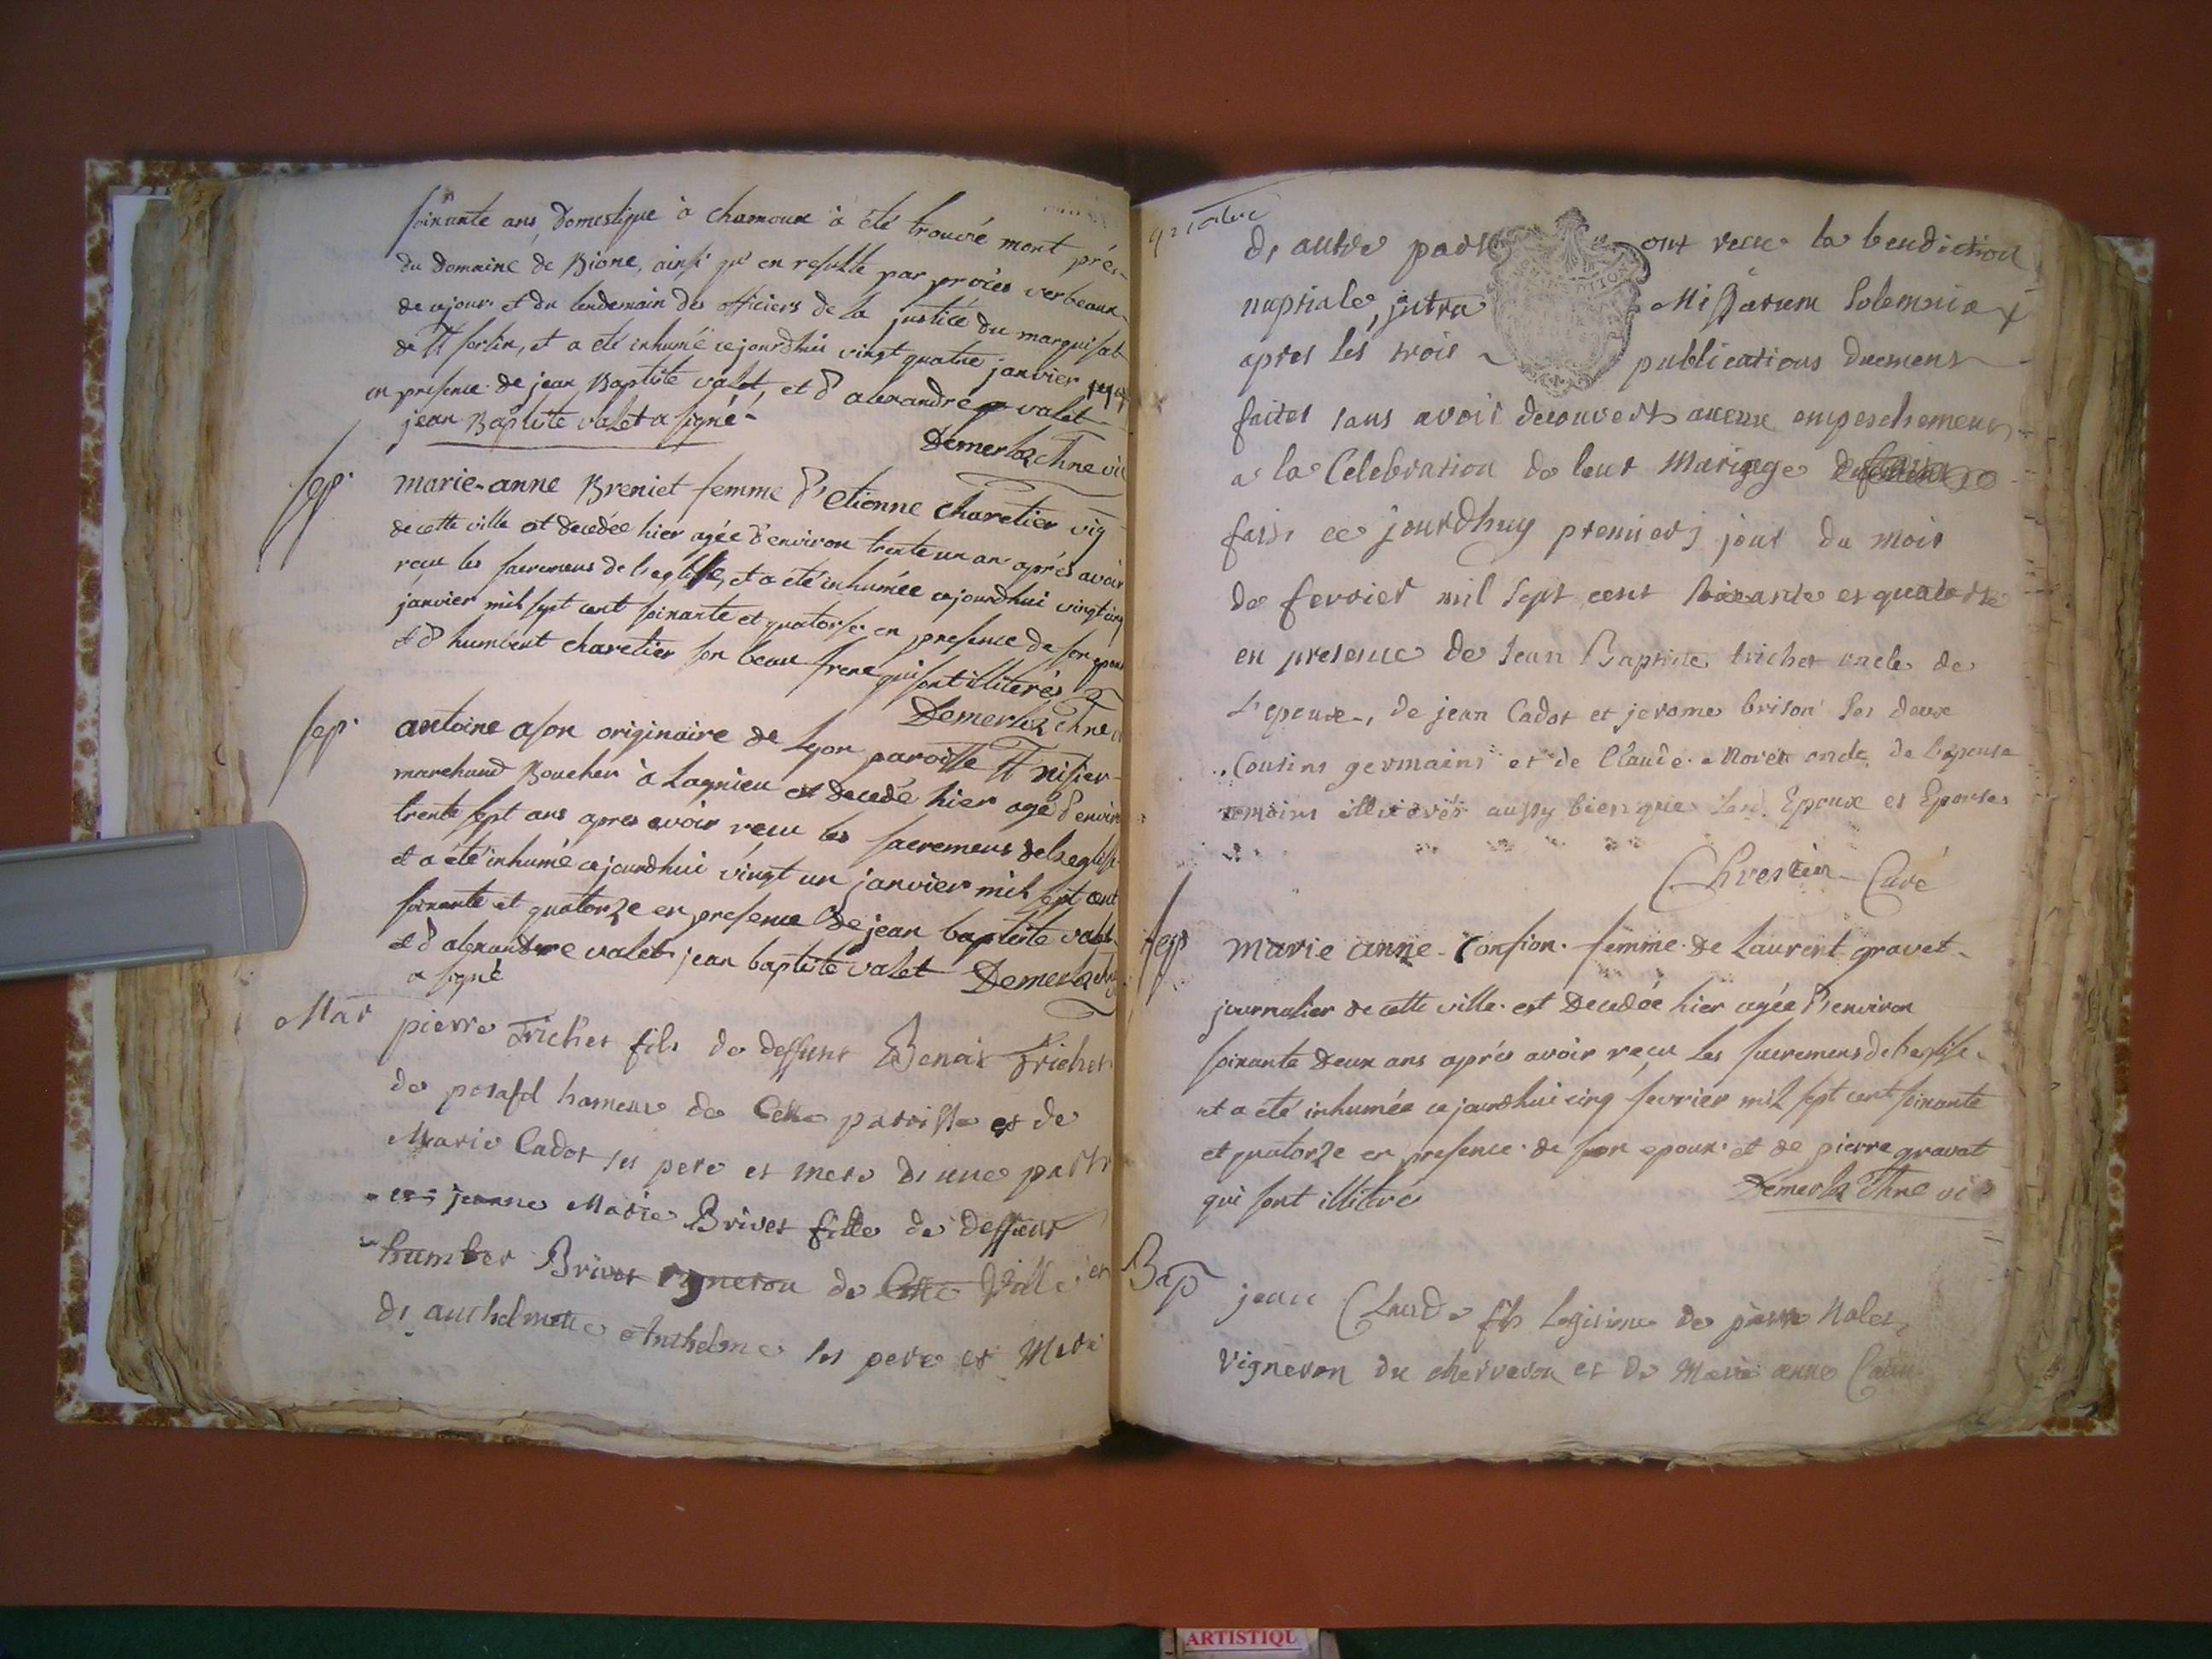 soixante ans, domestique à chamoux à été trouvé mort prés
du domaine de Bione, ainsi qu'en resulte par procès verbeaux
de ce jour et du lendemain des officiers de la justice du marquisat
de St sorlin, et a été inhumé cejourdhui vingt quatre janvier
en presence de jean Baptiste valet, et d'alexandre valet
jean Baptiste valet a signé
Demerloz
Sep. marie-anne Breniet femme d'etienne charetier vig
de cette ville est decedée hier agée d'environ trente un an après avoir
reçu les sacremens de l'eglise, et a été inhumée cejourdhui vingt cinq
janvier mil sept cent soixante et quatorse en presence de son epoux
et d'humbert charetier son beau frere qui sont illiterés
Demerloz
Sep. antoine ason originaire de Lyon paroisse St nisier
marchand Boucher à Lagnieu est decedé hier agé d'environ
trente sept ans apres avoir reçu les sacremens de l'eglise
et a été inhumé cejourdhui vingt un janvier mil sept cent
soixante et quatorze en presence de jean baptiste valet
et d'alexandre valet jean baptiste valet Demerloz
a signé
Mar pierre Trichet fils de deffunt Benoit Trichet
de posafol hameau de Cette parroisse et de
Marie Cadot ses pere et mere d'une part
et jeanne Marie Brivet fille de deffunt
humbert Brivet vigneron de Cette Ville et
d'anthelmette Anthelme ses pere et Mere
d'autre part ont receu la benediction
nuptiale, intra Missarum Solemnia
apres les trois publications duement
faites sans avoir decouvert aucun empeschement
a la Celebration de leur Mariage
fait ce jourdhuy premier jour du mois
de fevrier mil sept cent soixante et quatorse
en presence de Jean Baptiste trichet oncle de
L'epoux, de jean Cadot et jerome brison ses deux
Cousins germains et de Claude Moret oncle de l'epouse
temoins illiterés aussy bien que lesd. Epoux et Epouses
Chrestin Curé
Sep marie anne Confion femme de Laurent gravet
journalier de cette ville est decedée hier agée d'environ
soixante deux ans après avoir reçu les sacremens de l'eglise
et a été inhumée cejourdhui cinq fevrier mil sept cent soixante
et quatorze en presence de son epoux et de pierre gravat
qui sont illiteré Demerloz vic
Bap jean Claude fils Legitime de pierre
vigneron du et de Marie anne